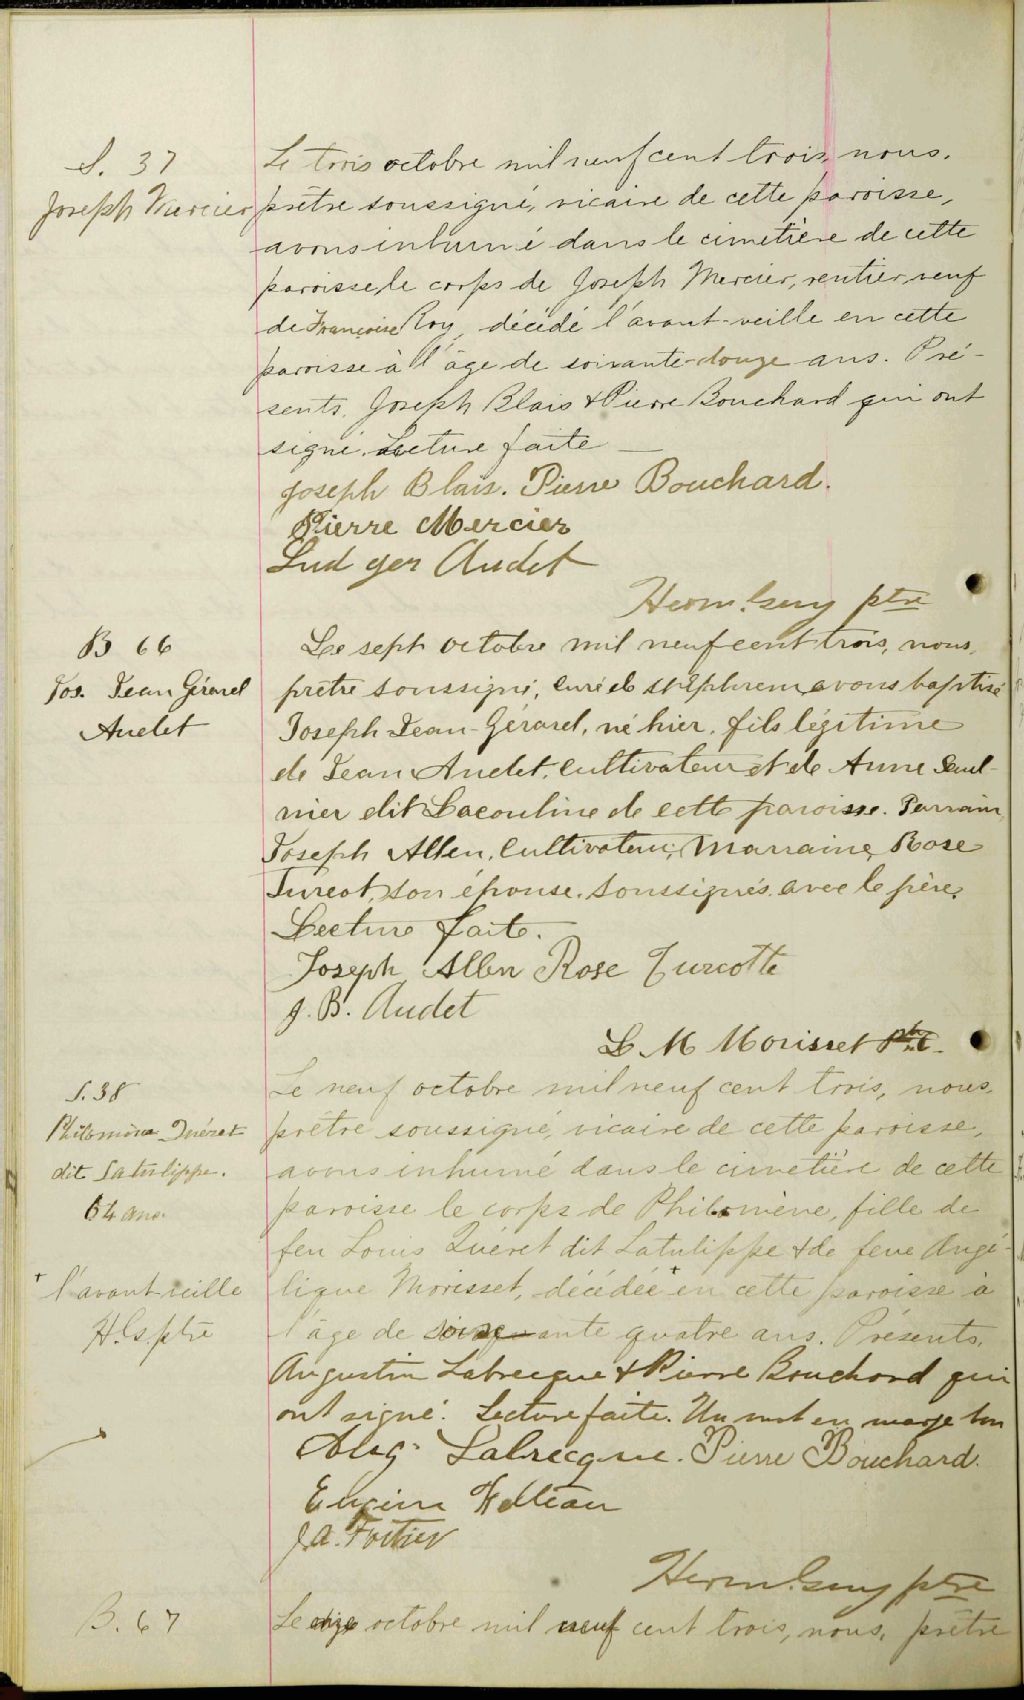 S. 37
Joseph Mercier
Le trois octobre mil neuf cent trois, nous,
prêtre soussigné, vicaire de cette paroisse,
avons inhumé dans le cimetière de cette
paroisse, le corps de Joseph Mercier, rentier, veuf
de Françoise Roy, décédé l'avant-veille en cette
paroisse à l'âge de soixante-douze ans. Pré-
sents, Joseph Blais & Pierre Bouchard qui ont
signé. Lecture faite —
Joseph Blais. Pierre Bouchard.
Pierre Mercier
Ludger Audet
Herm. Guy ptre
B 66
Jos. Jean Gérard
Audet
Le sept octobre mil neuf cent trois, nous,
prêtre soussigné, curé de St Ephrem, avons baptisé
Joseph Jean-Gérard, né hier, fils légitime
de Jean Audet, cultivateur et de Anna Saul-
nier dit Lacouline de cette paroisse. Parrain,
Joseph Allen, cultivateur; Marraine, Rose
Turcot, son épouse, soussignés avec le père.
Lecture faite.
Joseph Allen Rose Turcotte
J. B. Audet
L M Morisset Ptre
S. 38
Philomène Quéret
dit Latulippe.
64 ans.
+ l'avant-veille
H. G. ptre
Le neuf octobre mil neuf cent trois, nous,
prêtre soussigné, vicaire de cette paroisse,
avons inhumé dans le cimetière de cette
paroisse le corps de Philomène, fille de
feu Louis Quéret dit Latulippe & de feue Angé-
lique Morisset, décédée + en cette paroisse à
l'âge de soixante quatre ans. Présents,
Augustin Labrecque & Pierre Bouchard qui
ont signé. Lecture faite. Un mot en marge bon
Aug. Labrecque. Pierre Bouchard.
Eugène Filteau
J. A. Fortier
Herm. Guy ptre
B. 67
Le octobre mil neuf cent trois, nous, prêtre